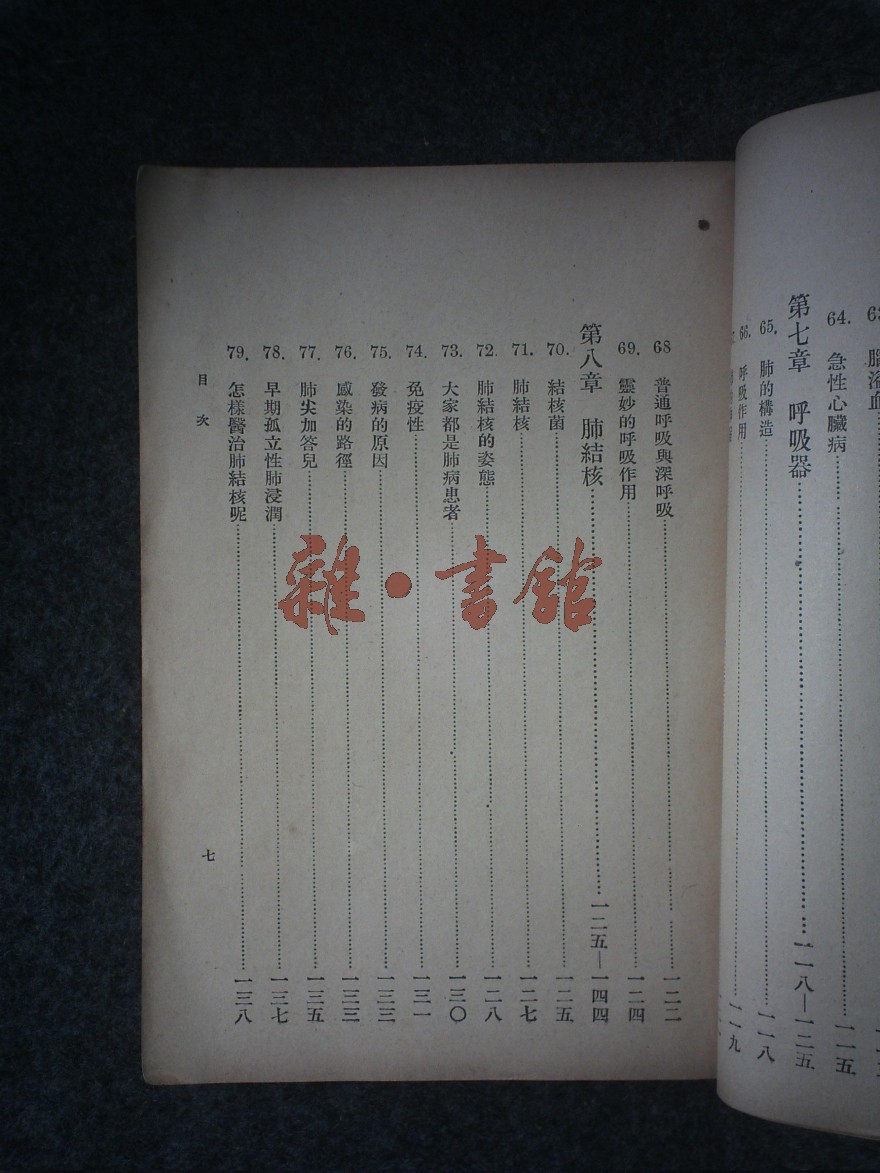 腦溢血
64. 急性心臟病……一一五
第七章 呼吸器……一一八—一二五
65. 肺的構造……一一八
66. 呼吸作用……一一九
68 普通呼吸與深呼吸……一二二
69. 靈妙的呼吸作用……一二四
第八章 肺結核……一二五—一四四
70. 結核菌……一二五
71. 肺結核……一二七
72. 肺結核的姿態……一二八
73. 大家都是肺病患者……一三〇
74. 免疫性……一三一
75. 發病的原因……一三三
76. 感染的路徑……一三三
77. 肺尖加答兒……一三五
78. 早期孤立性肺浸潤……一三七
79. 怎樣醫治肺結核呢……一三八
目次
七
雜·書館